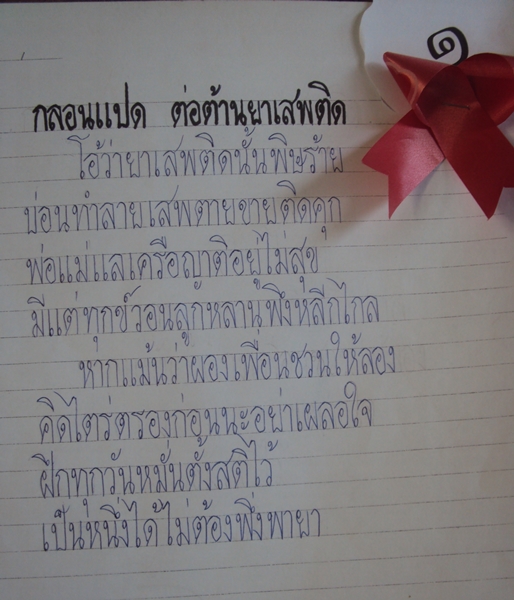 ๑
กลอนแปด ต่อต้านยาเสพติด
โอ้ว่ายาเสพติดนั้นพิษร้าย
บ่อนทำลายเสพตายขายติดคุก
พ่อแม่แลเครือญาติอยู่ไม่สุข
มีแต่ทุกข์วอนลูกหลานพึงหลีกไกล
หากแม้นว่าผองเพื่อนชวนให้ลอง
คิดไตร่ตรองก่อนนะอย่าเผลอใจ
ฝึกทุกวันหมั่นตั้งสติไว้
เป็นหนึ่งได้ไม่ต้องพึ่งพายา